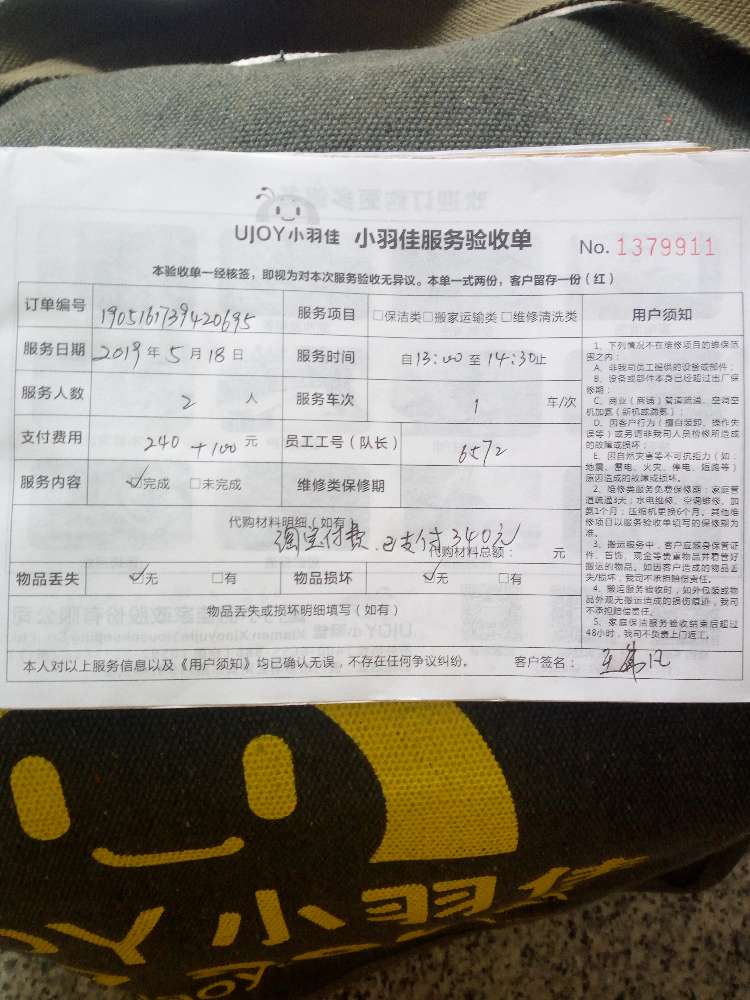 UJOY小羽佳 小羽佳服务验收单 No. 1379911
本验收单一经核签，即视为对本次服务验收无异议。本单一式两份，客户留存一份（红）
订单编号 190516173942069​5 服务项目 □保洁类□搬家运输类□维修清洗类 用户须知
服务日期 2019年5月18日 服务时间 自13:00至14:30止
服务人数 2 人 服务车次 1 车/次
支付费用 240+100 元 员工工号（队长） 6572
服务内容 ☑完成 □未完成 维修类保修期
代购材料明细（如有）
淘宝付款、已支付340元
代购材料总额： 元
物品丢失 ☑无 □有 物品损坏 ☑无 □有
物品丢失或损坏明细填写（如有）
本人对以上服务信息以及《用户须知》均已确认无误，不存在任何争议纠纷。 客户签名：
1、下列情况不在维修项目的维保范
围之内：
A、非我司员工提供的设备或部件；
B、设备或部件本身已经超过出厂保
修期；
C、商业（商铺）管道疏通、空调空
机加氟（新机或漏氟）；
D、因客户行为（擅自装卸、操作失
误等）或另请非我司人员检修所造成
的故障或损坏；
E、因自然灾害等不可抗拒力（如：
地震、雷电、火灾、停电、短路等）
原因造成的故障或损坏。
2、维修类服务免费保修期：家庭管
道疏通3天；水电维修、空调维修、加
氨1个月；压缩机更换6个月。其他维
修项目以服务验收单填写的保修期为
准。
3、搬运服务中，客户应随身保管证
件、首饰、现金等贵重物品并看管好
搬运的物品。如因客户造成的物品丢
失/损坏，我司不承担赔偿责任。
4、搬运服务验收时，如外包装或物
品外观无搬运造成的损伤痕迹，我司可
不承担赔偿责任。
5、家庭保洁服务验收结束后超过
48小时，我司不负责上门返工。